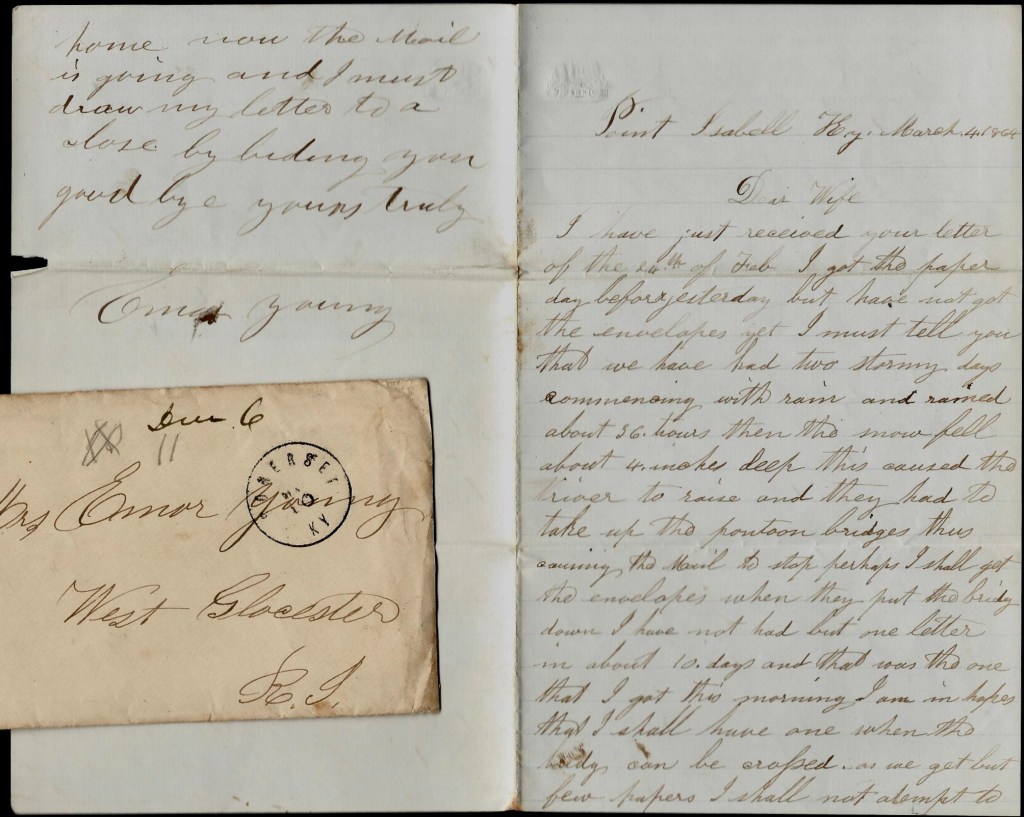 Point Isabell Ky. March. 4. 1864
Dear Wife
I have just received your letter
of the 24th of Feb I got the paper
day before yesterday but have not got
the envelopes yet I must tell you
that we have had two stormy days
commencing with rain and rained
about 36. hours then the snow fell
about 4. inches deep this caused the
river to raise and they had to
take up the pontoon bridges thus
causing the Mail to stop perhaps I shall get
the envelopes when they put the bridg
down I have not had but one letter
in about 10. days and that was the one
that I got this morning I am in hopes
that I shall have one when the
can be crossed. as we get but
few papers I shall not atempt to
home now the Mail
is going and I must
draw my letter to a
close by biding you
good bye yours truly
Emor Young
Due 6
11
SOMERSET
KY
Mrs Emor Young
West Glocester
R. I.